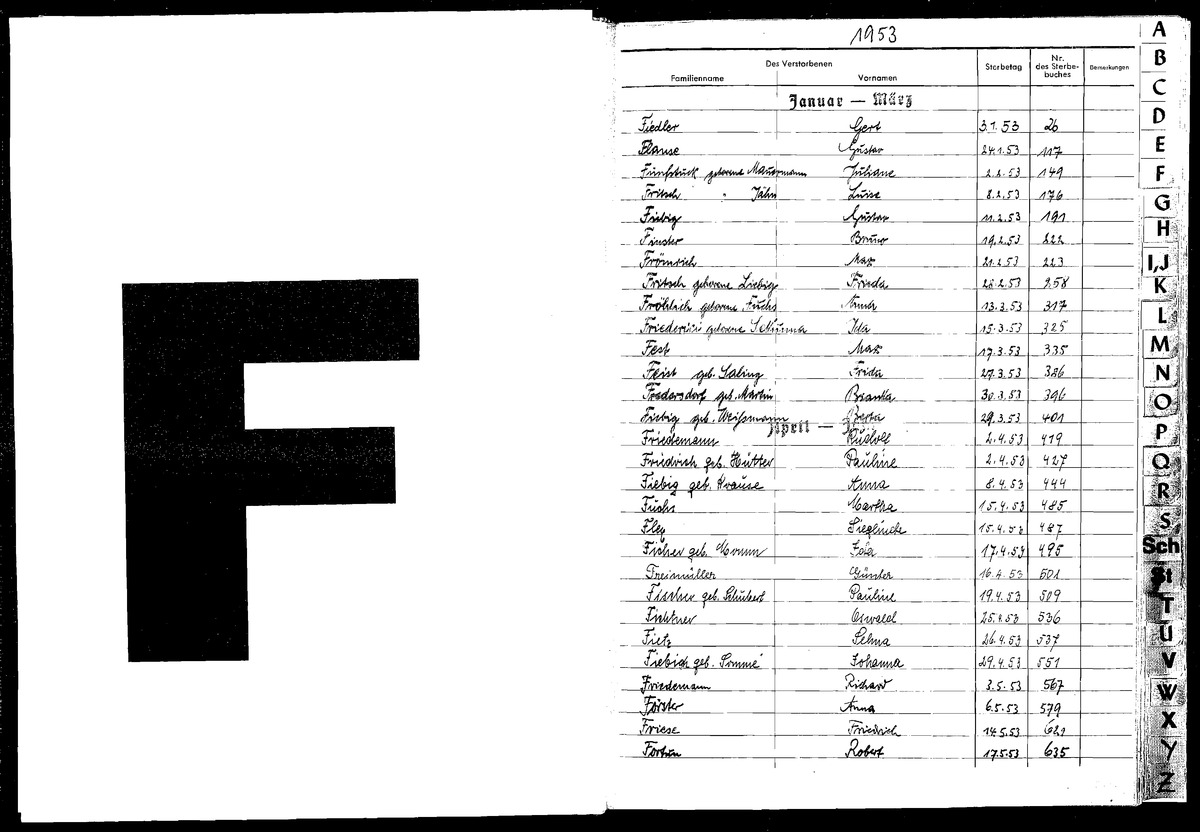 F
1953
Des Verstorbenen
Familienname Vornamen Sterbetag Nr. des Sterbebuches Bemerkungen
Januar — März
Fiedler Gert 3.1.53 26
Flause Gustav 24.1.53 117
Fünfstück geborene Mauermann Juliane 2.2.53 149
Fritsch " Jähn Luise 8.2.53 176
Fiebig Gustav 11.2.53 191
Finster Bruno 19.2.53 222
Frömrich Max 21.2.53 223
Fritsch geborene Liebig Frieda 28.2.53 258
Fröhlich geborene Fuchs Anna 13.3.53 317
geborene Ida 15.3.53 325
Fest Max 17.3.53 335
Feist geb. Saling Frida 27.3.53 386
Fredersdorf geb. Martin Bianka 30.3.53 396
Fiebig geb. Weißmann Berta 29.3.53 401
April —
Friedemann Rudolf 2.4.53 419
Friedrich geb. Hütter Pauline 2.4.53 427
Fiebig geb. Krause Anna 8.4.53 444
Fuchs Martha 15.4.53 485
Fley Sieglinde 15.4.53 487
Ficher geb. Ida 17.4.53 495
Freimüller Günter 16.4.53 501
Fischer geb. Schubert Pauline 19.4.53 509
Fichtner Oswald 25.4.53 536
Fietz Selma 26.4.53 537
Fiebich geb. Sommé Johanna 29.4.53 551
Friedemann Richard 3.5.53 567
Förster Anna 6.5.53 579
Friese Friedrich 14.5.53 621
Fortun Robert 17.5.53 635
A
B
C
D
E
F
G
H
I,J
K
L
M
N
O
P
Q
R
S
Sch
St
T
U
V
W
X
Y
Z